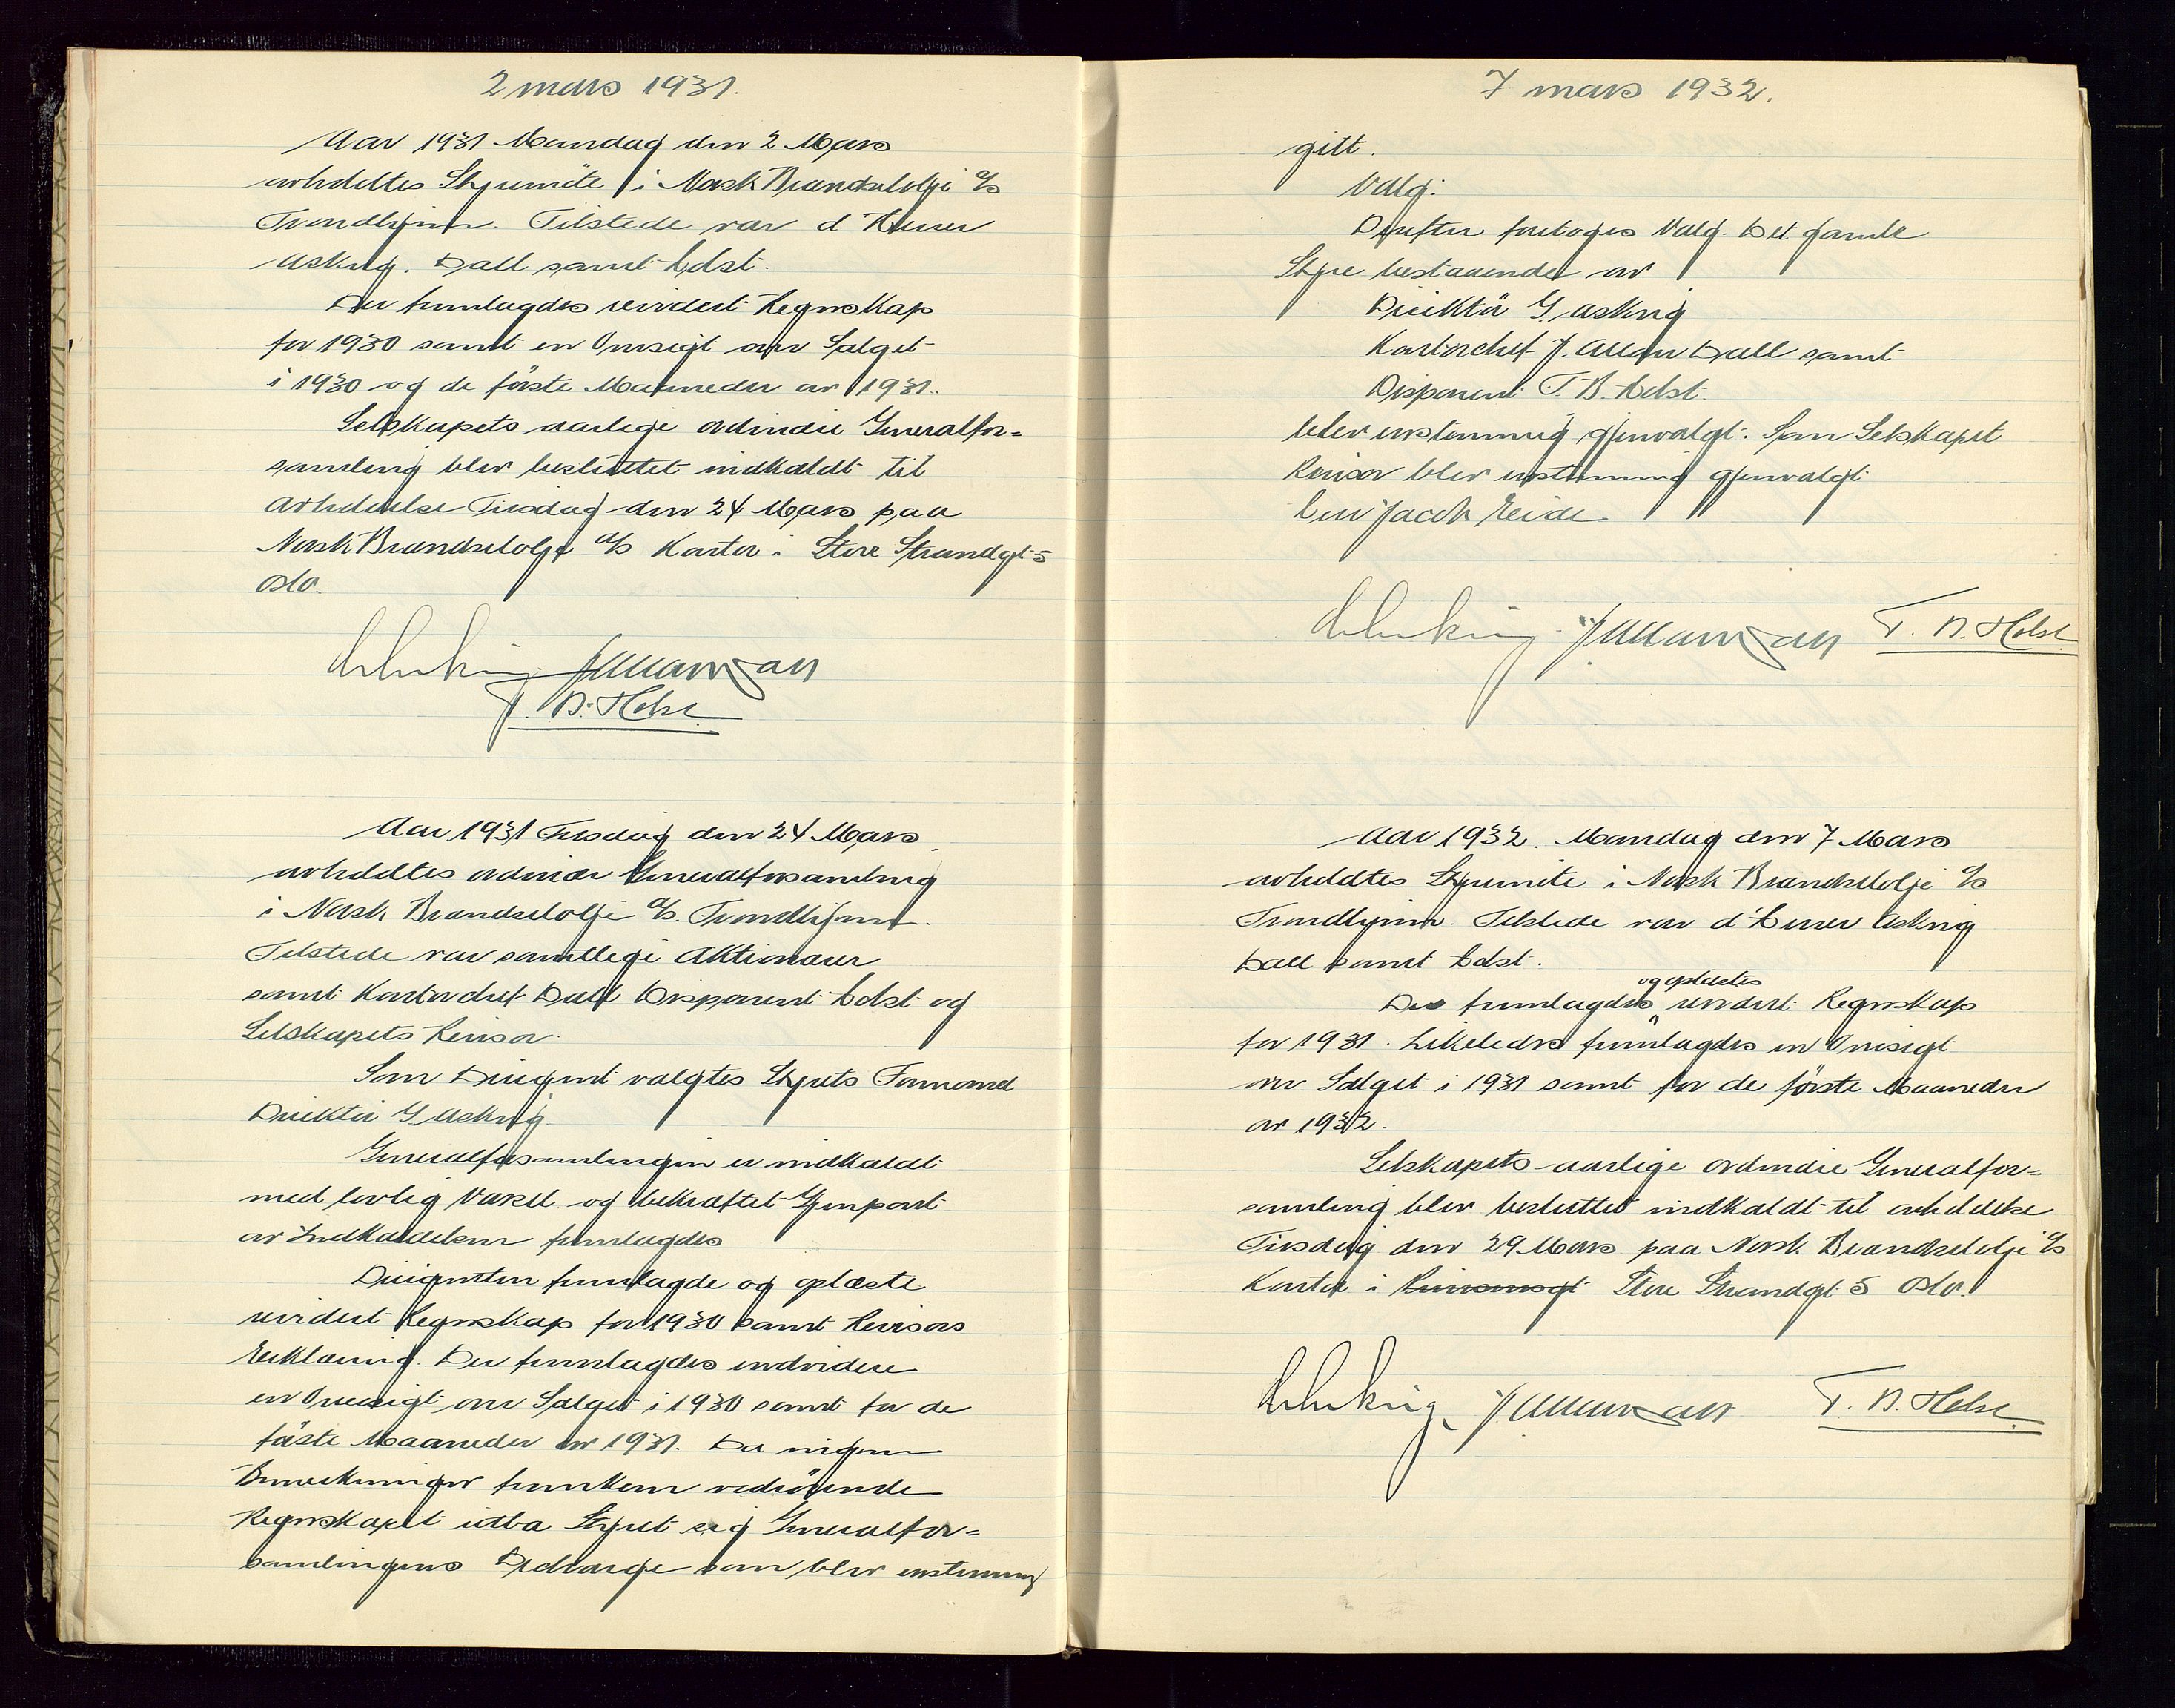 2 mars 1931.
Aar 1931 Mandag den 2 Mars
avholdtes Styremöte i Norsk Brændselolje A/S
Trondhjem. Tilstede var d'Herrer
Askvig. Dall samt Holst.
Der fremlagdes revidert Regnskap
for 1930 samt en Oversigt over Salget
i 1930 og de förste Maaneder av 1931.
Selskapets aarlige ordinære Generalfor=
samling blev besluttet indkaldt til
Avholdelse Tirsdag den 24 Mars paa
Norsk Brændselolje A/S Kontor i Store Strandgt 5
Oslo.
J. Allan Dall
T. B. Holst.
Aar 1931 Tirsdag den 24 Mars
avholdtes ordinær Generalforsamling
i Norsk Brændselolje A/S. Trondhjem.
Tilstede var samtlige Aktionærer
samt Kontorchef Dall Disponent Holst og
Selskapets Revisor.
Som Dirigent valgtes Styrets Formand
Direktör G Askvig.
Generalforsamlingen er indkaldt
med lovlig Varsel og bekræftet Gjenpart
av Indkaldelsen fremlagdes
Dirigenten fremlagde og oplæste
revidert Regnskap for 1930 samt Revisors
Erklæring. Der fremlagdes endvidere
en Oversigt over Salget i 1930 samt for de
förste Maaneder av 1931. Da ingen
Bemerkninger fremkom vedrörende
Regnskapet utba Styret sig Generalfor=
samlingens Decharge som blev enstemmig
7 mars 1932.
gitt.
Valg:
Derefter foretoges Valg. Det gamle
Styre bestaaende av
Direktör G. Askvig
Kontorchef J. Allan Dall samt
Disponent T. B. Holst.
blev enstemmig gjenvalgt. Som Selskapet
Revisor blev enstemmig gjenvalgt
Herr Jacob Eide
J Allan Dall T. B. Holst
Aar 1932. Mandag den 7 Mars
avholdtes Styremöte i Norsk Brændselolje A/S
Trondhjem. Tilstede var d'Herrer Askvig
Dall samt Holst.
og oplæstes
Der fremlagdes revidert Regnskap
for 1931. Likeledes fremlagdes en Oversigt
over Salget i 1931 samt for de förste Maaneder
av 1932.
Selskapets aarlige ordinære Generalfor=
samling blev besluttet indkaldt til avholdelse
Tirsdag den 29 Mars paa Norsk Brændselolje A/S
Kontor i Store Strandgt 5 Oslo.
J. Allan Dall T. B. Holst.